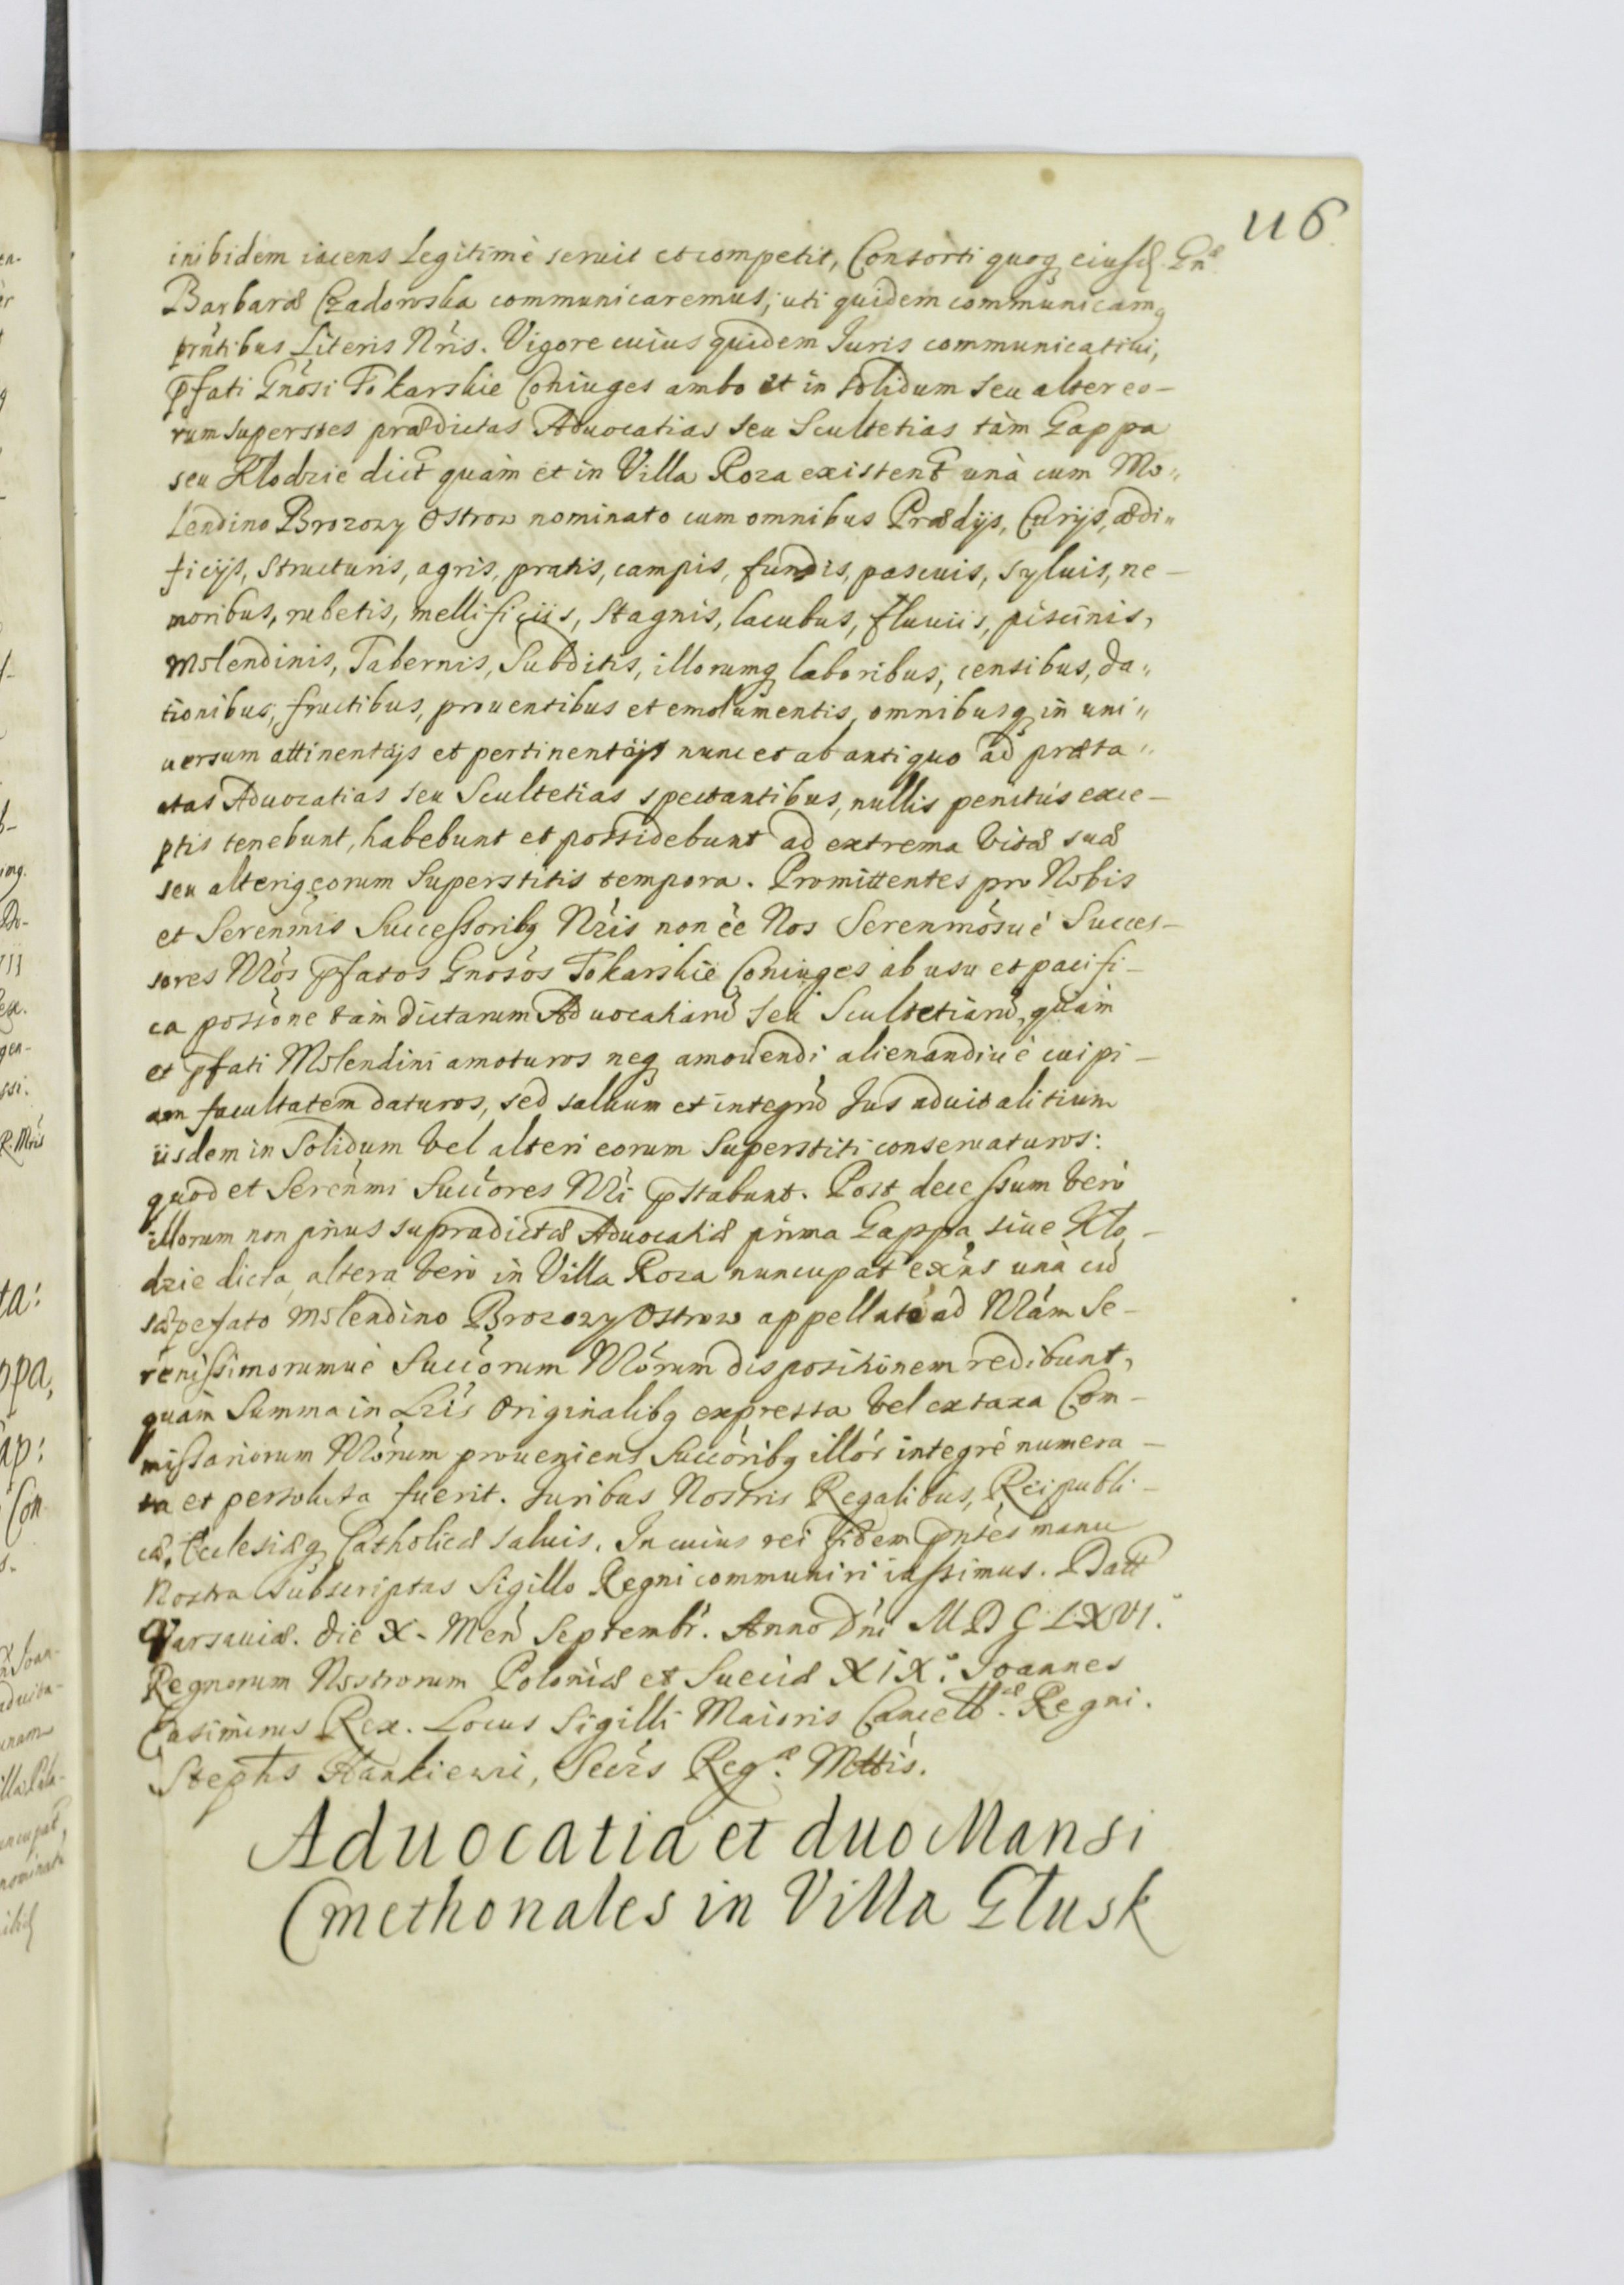 116
inibidem iacens Legitimè seruit et competit, Consorti quoq eiusd. Gnæ
Barbaræ Czadowska communicaremus; uti quidem communicamq
prńtibus Literis Nŕis. Vigore cuius quidem Iuris communicatiui,
p̄fati Gnosi Tokarskie Coniuges ambo et in solidum seu alter eo-
rum superstes prædictas Aduocatias seu Scultetias tàm Gappa
seu Klodzie dict quàm et in Villa Roza existent unà cum Mo,,
lendino Brozozy Ostrow nominato cum omnibus Prædijs, Curijs, ædi,,
ficijs, structuris, agris, pratis, campis, fundis, pascuis, syluis, ne-
moribus, rubetis, mellificiis, stagnis, lacubus, fluuiis, piscinis,
Molendinis, Tabernis, Subditis, illorumq laboribus, censibus, da,,
tionibus, fructibus, prouentibus et emolumentis, omnibusq in uni,,
uersum attinentijs et pertinentijs nunc et ab antiquo ad præta,,
ctas Aduocatias seu Scultetias spectantibus, nullis penitùs exce-
ptis tenebunt, habebunt et possidebunt ad extrema vitæ suæ
seu alteriq eorum Superstitis tempora. Promittentes pro Nobis
et Serenmis Successoribq Nŕis non ée Nos Serenmósuè Succes-
sores Nŕos p̄fatos Gnosós Tokarskie Coniuges ab usu et pacifi-
ca possione tàm dictarum Aduocatiarū seu Scultetiarū, quàm
et p̄fati Molendini amoturos neq amouendi alienandiuè cuipi-
am facultatem daturos, sed saluum et integrū Ius aduitalitium
iisdem in Solidum vel alteri eorum Superstiti conseruaturos:
quod et Serenmi Succores Nŕi p̄stabunt. Post decessum verò
illorum non priùs supradictæ Aduocatiæ prima Gappa siue Klo-
dzie dicta, altera verò in Villa Roza nuncupat exńs unà cū
sæpefato Molendino Brozozy Ostrow appellato ad Nŕam Se-
renissimorumuè Succorum Nŕorum dispositionem redibunt,
quàm Summa in Lŕis Originalibq expressa vel ex taxa Com-
missariorum Nŕorum proueniens Succoribq illór integrè numera-
ta et persoluta fuerit. Iuribus Nostris Regalibus, Reipubli-
cæ, Ecclesiæq Catholicæ saluis. In cuius rei fidem pńtes manu
Nostra subscriptas Sigillo Regni communiri iussimus. Datt
Varsauiæ. die X. Men Septembr. Anno Dńi MDCLXVI.
Regnorum Nostrorum Poloniæ et Sueciæ XIX. Ioannes
Casimirus Rex. Locus Sigilli Maioris Cancellæ. Regni.
Stephs Hankiewic, Secrs Regæ. Mttis.
Aduocatia et duo Mansi
Cmethonales in Villa Glusk